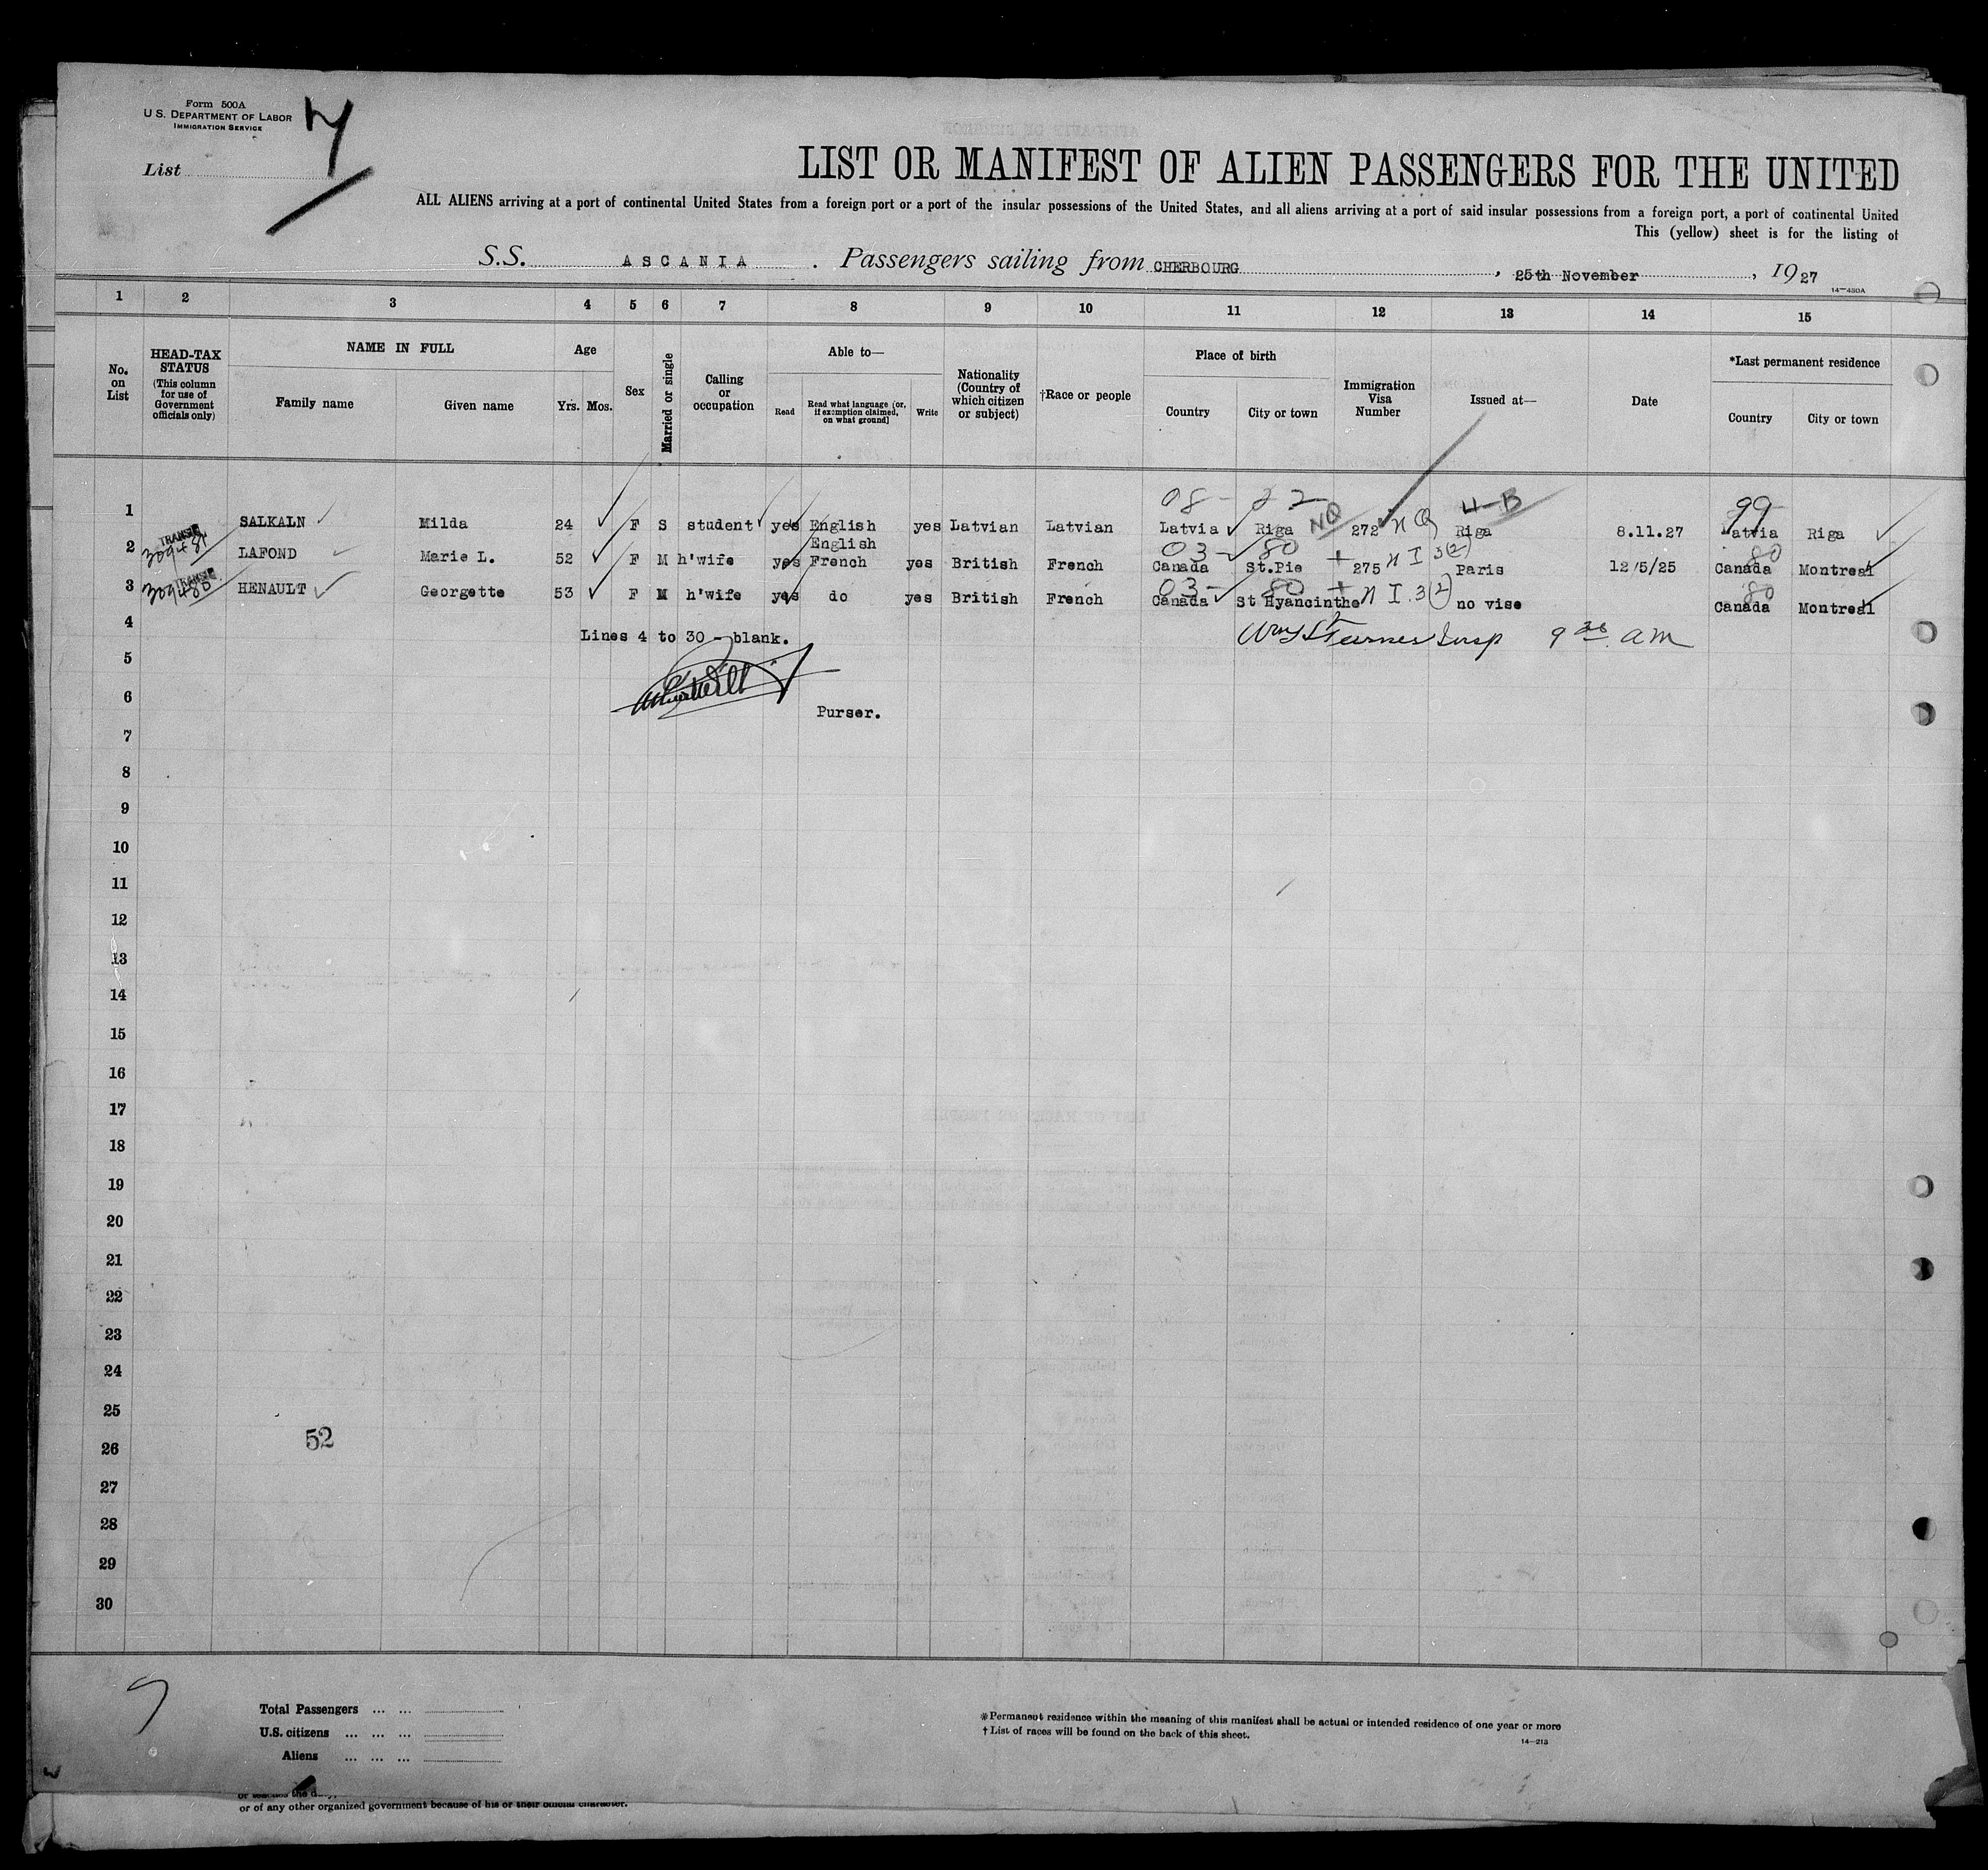 Form 500A
U. S. DEPARTMENT OF LABOR
IMMIGRATION SERVICE
List
LIST OR MANIFEST OF ALIEN PASSENGERS FOR THE UNITED
ALL ALIENS arriving at a port of continental United States from a foreign port or a port of the insular possessions of the United States, and all aliens arriving at a port of said insular possessions from a foreign port, a port of continental United
This (yellow) sheet is for the listing of
S.S. ASCANIA . Passengers sailing from CHERBOURG , 25th November , 1927
14—480A
1 2 3 4 5 6 7 8 9 10 11 12 13 14 15
No. on List
HEAD-TAX STATUS (This column for use of Government officials only)
NAME IN FULL
Family name Given name
Age
Yrs. Mos.
Sex
Married or single
Calling or occupation
Able to—
Read Read what language (or, if exemption claimed, on what ground) Write
Nationality (Country of which citizen or subject)
†Race or people
Place of birth
Country City or town
Immigration Visa Number
Issued at—
Date
*Last permanent residence
Country City or town
08 - 22 NQ 4-B 99
1 SALKALN Milda 24 F S student yes English yes Latvian Latvian Latvia Riga 272 NQ Riga 8.11.27 Latvia Riga
TRANSIT
English 03 - 80 80
2 LAFOND Marie L. 52 F M h'wife yes French yes British French Canada St.Pie 275 N I 3(2) Paris 12/5/25 Canada Montreal
TRANSIT
03 - 80 80
3 HENAULT Georgette 53 F M h'wife yes do yes British French Canada St Hyancinthe N I. 3(2) no vise Canada Montreal
4 Lines 4 to 30 - blank. Insp 9 30 am
5
6 Purser.
7
8
9
10
11
12
13
14
15
16
17
18
19
20
21
22
23
24
25
52
26
27
28
29
30
Total Passengers ... ...
U.S. citizens ... ... ...
Aliens ... ... ...
*Permanent residence within the meaning of this manifest shall be actual or intended residence of one year or more
†List of races will be found on the back of this sheet.
14—213
or of any other organized government because of his or their official character.